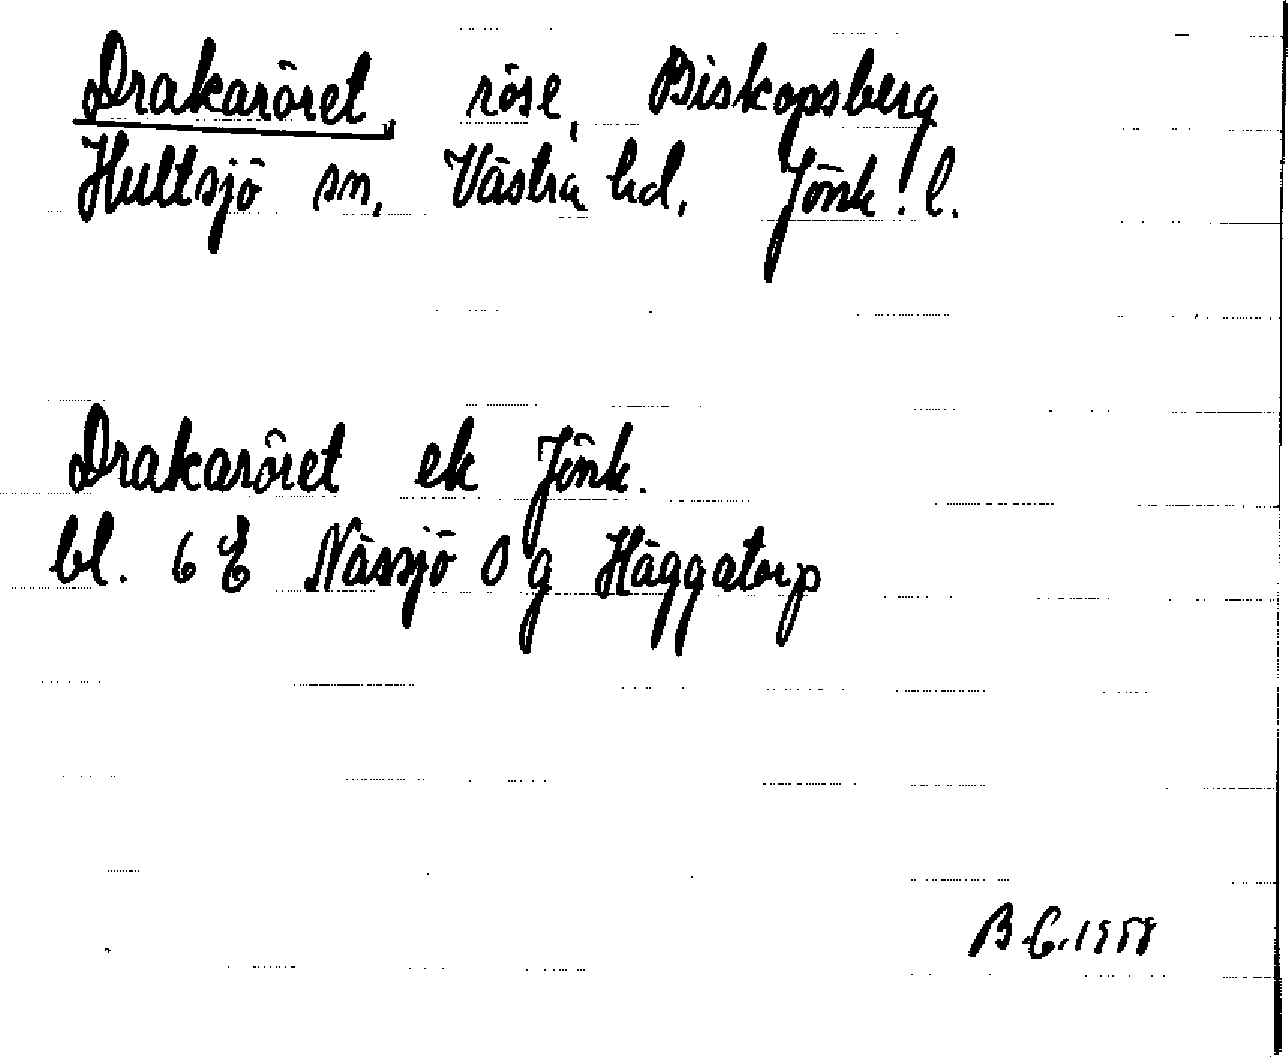 Drakaröret, röse, Biskopsberg
Hultsjö sn, Västra hd, Jönk. l.
Drakaröret ek Jönk.
bl. 6 E Nässjö 0 g Häggatorp